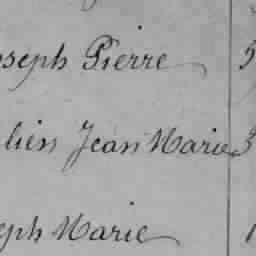 oseph Pierre 5
lien Jean Marie 3
eph Marie 1